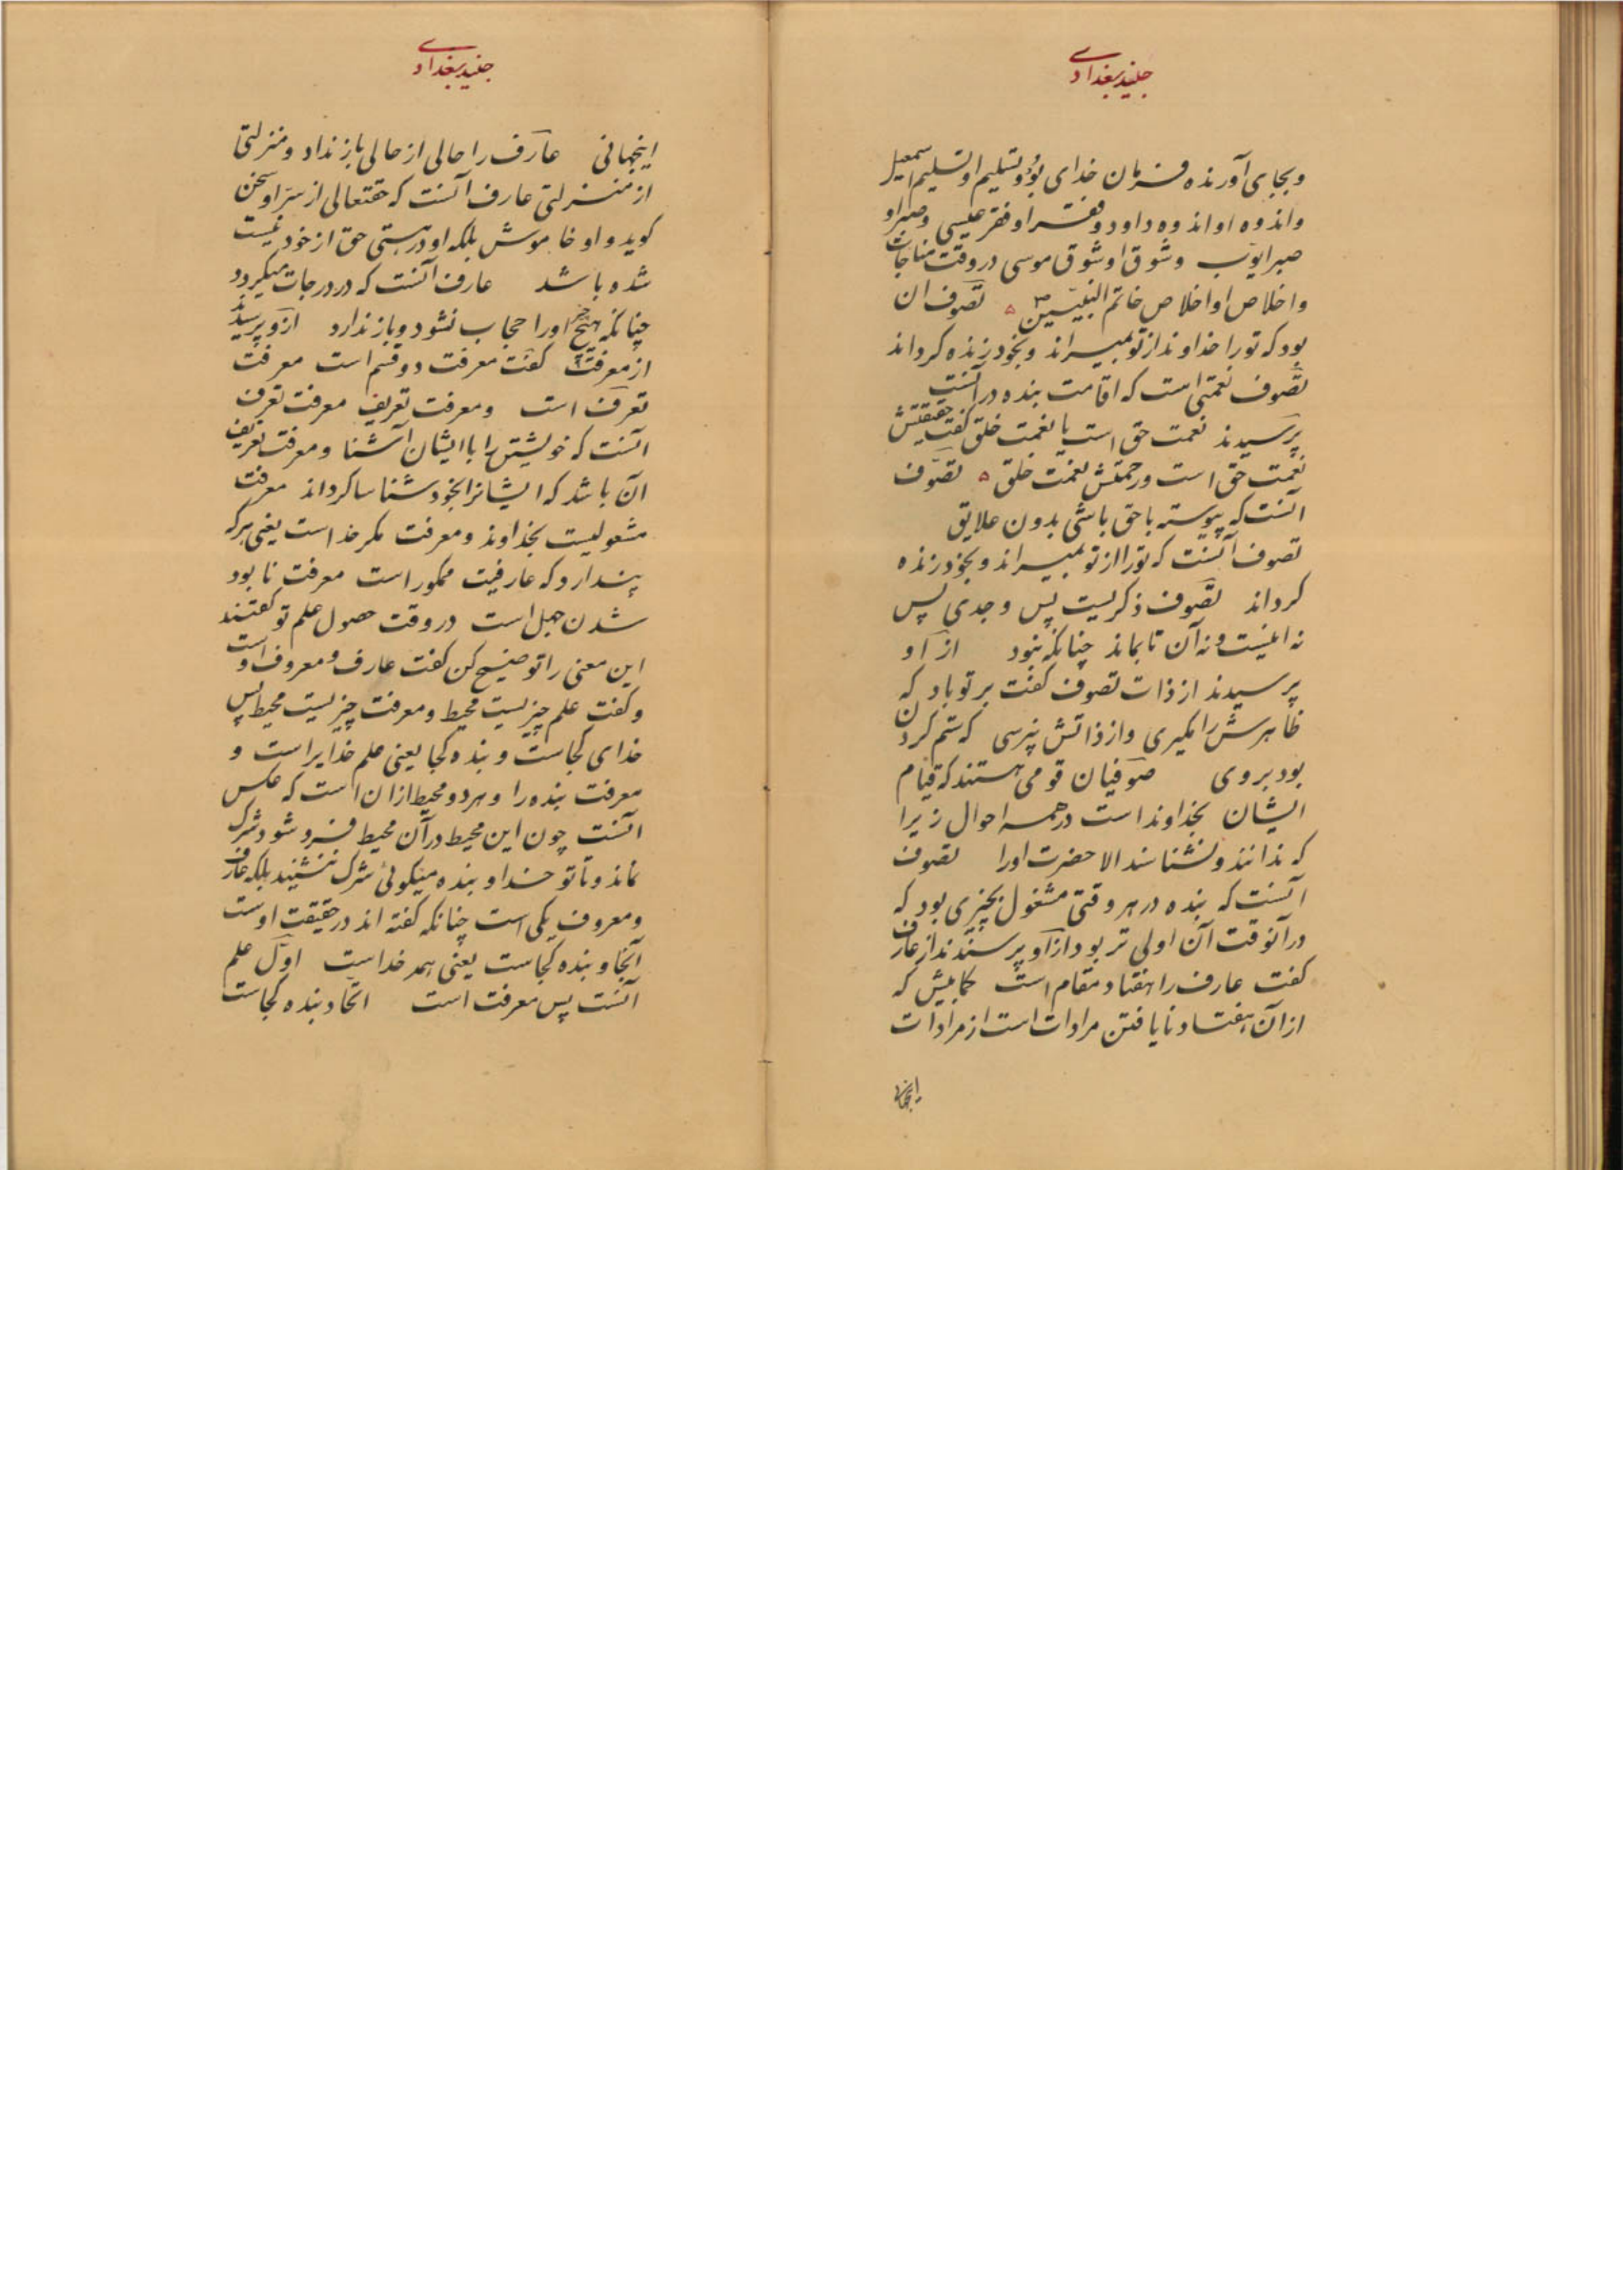 جنید بغدادی
وبجای آورنده فرمان خدای بود و تسلیم او تسلیم اسمعیل
واندوه او اندوه داود و فقر او فقر عیسی و صبر او
صبر ایوب وشوق او شوق موسی در وقت مناجات
واخلاص او اخلاص خاتم النبیین ص تصوف آن
بود که تو را خداوند از تو بمیراند و بخود زنده کرداند
تصوف نعمتی است که اقامت بنده در آنست
پرسیدند نعمت حق است یا نعمت خلق کفت حقیقتش
نعمت حق است ورحمتش نعمت خلق ه تصوف
آنست که پیوسته با حق باشی بدون علایق
تصوف آنست که تو را از تو بمیراند و بخود زنده
کرداند تصوف ذکریست پس وجدی پس
نه اینست ونه آن تا بماند چنانکه نبود از او
پرسیدند از ذات تصوف کفت بر تو باد که
ظاهرش را بکیری واز ذاتش نپرسی که ستم کردن
بود بر وی صوفیان قومی هستند که قیام
ایشان بخداوند است در همه احوال زیرا
که ندانند ونشناسند الا حضرت او را تصوف
آنست که بنده در هر وقتی مشغول بچیزی بود که
در آنوقت آن اولی تر بود از او پرسیدند از عارف
کفت عارف را هفتاد مقام است کمابیش که
از آن هفتاد نایافتن مرادات است از مرادات
اینجهانی
جنید بغدادی
اینجهانی عارف را حالی از حالی باز ندارد ومنزلتی
از منزلتی عارف آنست که حقتعالی از سر او سخن
کوید و او خاموش بلکه او در هستی حق از خود نیست
شده باشد عارف آنست که در درجات میکردد
چنانکه هیچ چیز او را حجاب نشود وباز ندارد ازو پرسیدند
از معرفت کفت معرفت دو قسم است معرفت
تعرف است ومعرفت تعریف معرفت تعرف
آنست که خویشتن را با ایشان آشنا ومعرفت تعریف
آن باشد که ایشانرا بخود شناسا کرداند معرفت
مشغولیست بخداوند ومعرفت مکر خداست یعنی هر که
پندارد که عارفیت ممکور است معرفت نابود
شدن جهل است در وقت حصول علم تو کفتند
این معنی را توضیح کن کفت عارف و معروف اوست
وکفت علم چیزیست محیط ومعرفت چیزیست محیط پس
خدای کجاست و بنده کجا یعنی علم خدایراست و
معرفت بنده را و هر دو محیط از ان است که عکس
آنست چون این محیط در آن محیط فرو شود شرک
نماند و تا تو خدا و بنده میکوئی شرک ننشیند بلکه عارف
ومعروف یکی است چنانکه کفته اند در حقیقت اوست
آنجا و بنده کجاست یعنی همه خداست اول علم
آنست پس معرفت است اتحاد بنده کجاست